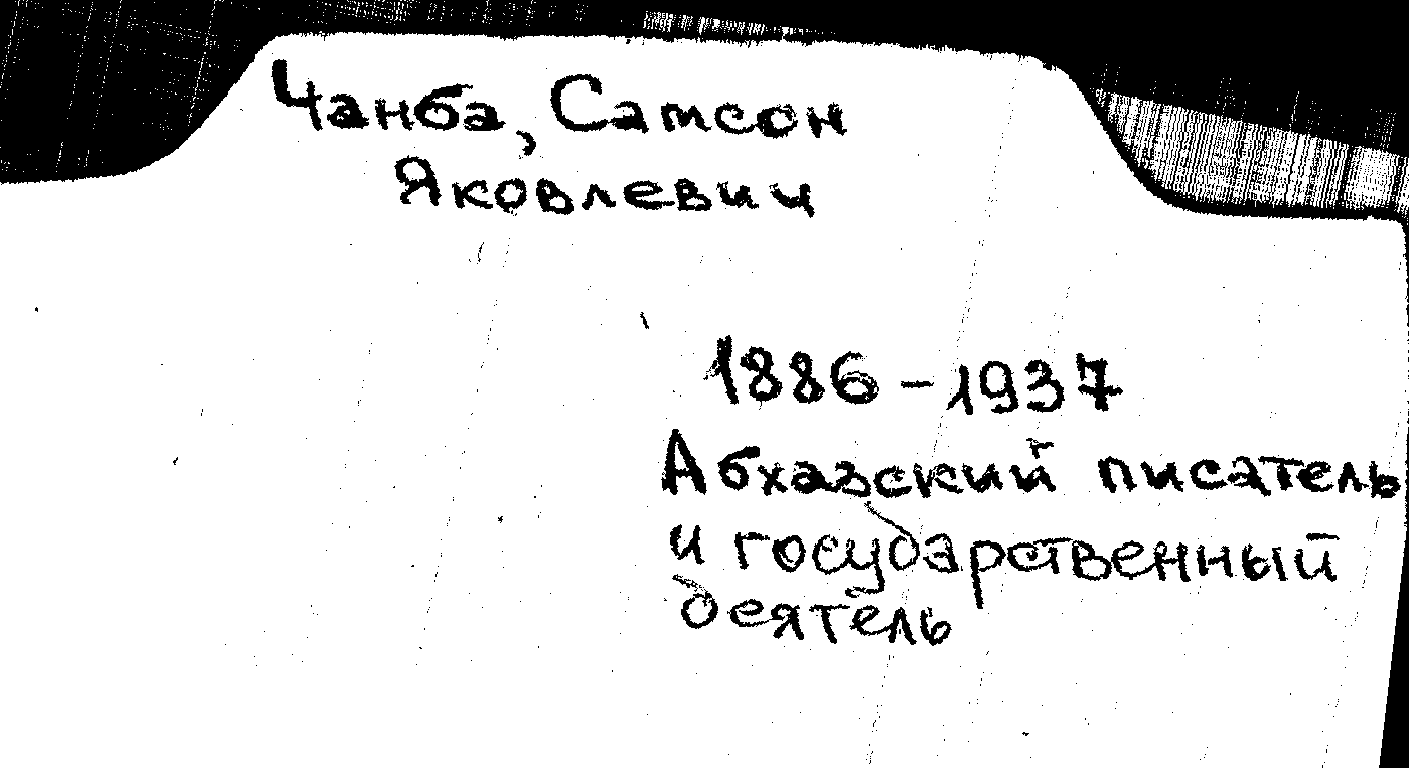 Чанба, Самсон
Яковлевич
1886-1937
Абхазский писатель
и государственный
деятель